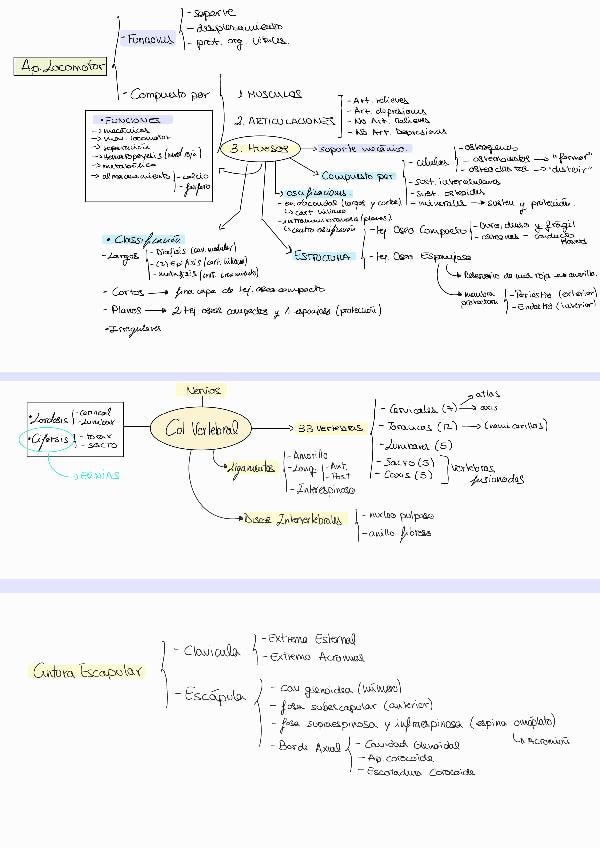 Ap. Locomotor
- Funciones
- soporte
- desplazamiento
- prot. org. vitales.
- Compuesto por
1. MUSCULOS
2. ARTICULACIONES
- Art. relieves
- Art. depresiones
- No Art. relieves
- No Art. Depresiones
3. Huesos
• FUNCIONES
→ mecánicas
→ mov. locomotor
→ hematopoyesis (med roja)
→ metabólica
→ almacenamiento
- calcio
- fosforo
→ soporte mecánico.
Compuesto por
- células
- osteogena
- osteoblastos → "formar"
- osteoclastos → "destruir"
- sust. intercelulares
- sust. osteoides
- minerales → sosten y protección.
→ osificaciones
- endocondral (largos y cortos)
- intramembranosa (planos)
ESTRUCTURA
- tej. Oseo Compacto
- Duro, denso y frágil
- tej. Oseo Esponjoso
→ Reservorio de med. roja y amarilla.
- Periostio (exterior)
- Endostio (interior)
• Clasificación
- Largos
- Diafisis (can. medular)
- (2) Epifisis (cart. hialino)
- Cortos → fina capa de tej. oseo compacto
- Planos → 2 tej oseos compactos y 1 esponjoso (protección)
- Irregulares
Nervios
Col Vertebral
• Lordosis
- Cervical
- Lumbar
• Cifosis
- torax
- SACRO
→ HERNIAS
33 vertebras
- Cervicales (7)
→ atlas
→ axis
- Toracicas (12) → (hemicarillas)
- Lumbares (5)
- Sacro (5)
- Coxis (5)
vertebras fusionadas
Ligamentos
- Amarillo
- Long.
- Ant.
- Post
- Interespinoso
Discos Intervertebrales
- nucleo pulposo
- anillo fibroso
Cintura Escapular
- Clavicula
- Extremo Esternal
- Extremo Acromial
- Escápula
- cav glenoidea (húmero)
- fosa subescapular (anterior)
- fosa supraespinosa y infraespinosa (espina omóplato)
↳ Acromión
- Borde Axial
- Cavidad Glenoidal
- Ap coracoide
- Escotadura Coracoide